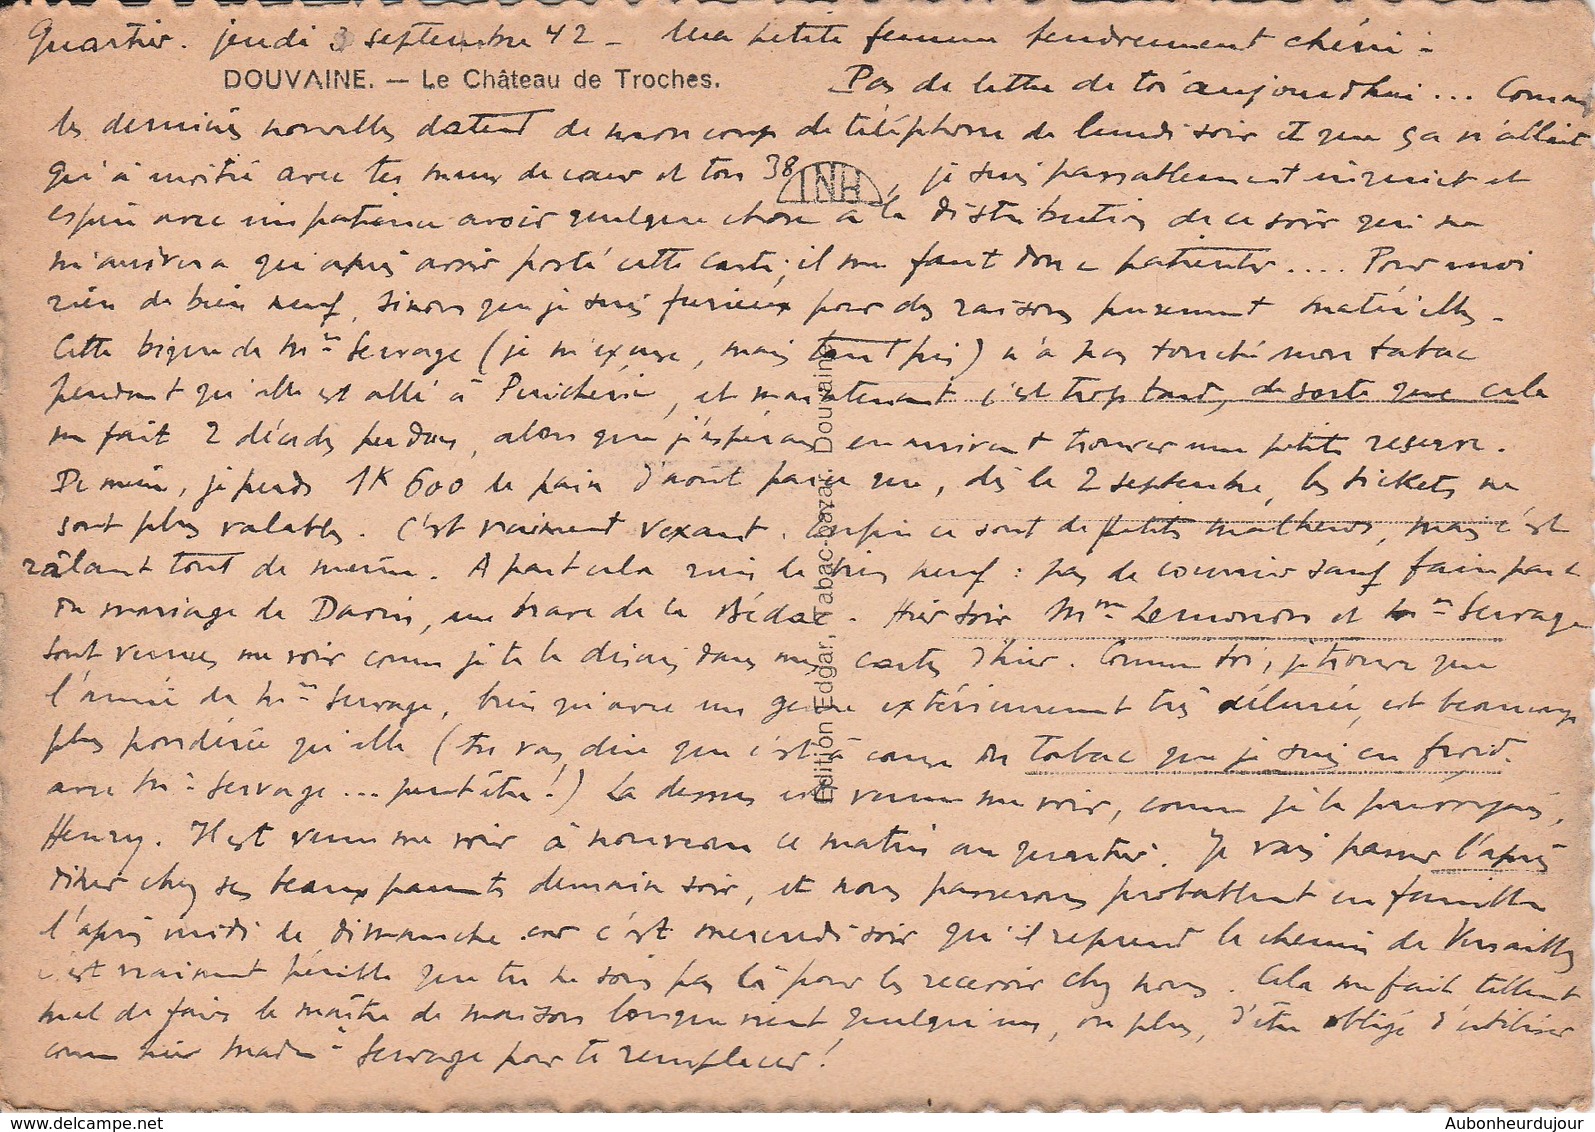 Quartier. jeudi 3 septembre 42 - Ma petite femme tendrement chérie :
DOUVAINE. — Le Château de Troches.
Pas de lettre de toi aujourd'hui ... Comme
les dernières nouvelles datent de mon coup de téléphone de lundi soir et que ça n'allait
qu'à moitié avec tes maux de cœur et ton 38, je suis passablement inquiet et
espère avec impatience avoir quelque chose à la distribution de ce soir qui ne
m'arrivera qu'après avoir posté cette carte ; il me faut donc patienter .... Pour moi
rien de bien neuf, sinon que je suis furieux pour des raisons purement matérielles -
Cette bigre de Mme Servage (je m'excuse, mais tant pis) n'a pas touché mon tabac
pendant qu'elle est allé à , et maintenant c'est trop tard, de sorte que cela
me fait 2 décades perdues, alors que j'espérais en arrivant trouver une petite reserve.
De même, je perds 1K 600 de pain d'août parce que, dès le 2 septembre, les tickets ne
sont plus valables. C'est vraiment vexant. Enfin ce sont de petits malheurs, mais c'est
râlant tout de même. A part cela rien de bien neuf : pas de courrier sauf faire part
du mariage de , un brave de la . Hier soir Mme Lemonon et Mme Servage
sont venues me voir comme je te le disais dans mes cartes d'hier. Comme toi, je trouve que
l'amie de Mme Servage, bien qu'avec un genre extérieurement très délurée, est beaucoup
plus pondérée qu'elle (tu vas dire que c'est à cause du tabac que je suis en froid
avec Me Servage ... peut être !) La dessus est venu me voir, comme je le ,
Henry. Il est venu me voir à nouveau ce matin au quartier. Je vais passer l'après
diner chez ses beaux parents demain soir, et nous passerons probablement en famille
l'après midi de dimanche car c'est mercredi soir qu'il reprend le chemin de Versailles
c'est vraiment pénible que tu ne sois pas là pour les recevoir chez nous. Cela me fait tellement
mal de faire le maître de maison lorsque vient quelqu'un, ou plus, d'être obligé d'utiliser
comme hier Madme Servage pour te remplacer !
INH
Edition Edgar, Tabac-bazar, Douvaine
www.delcampe.net
Aubonheurdujour